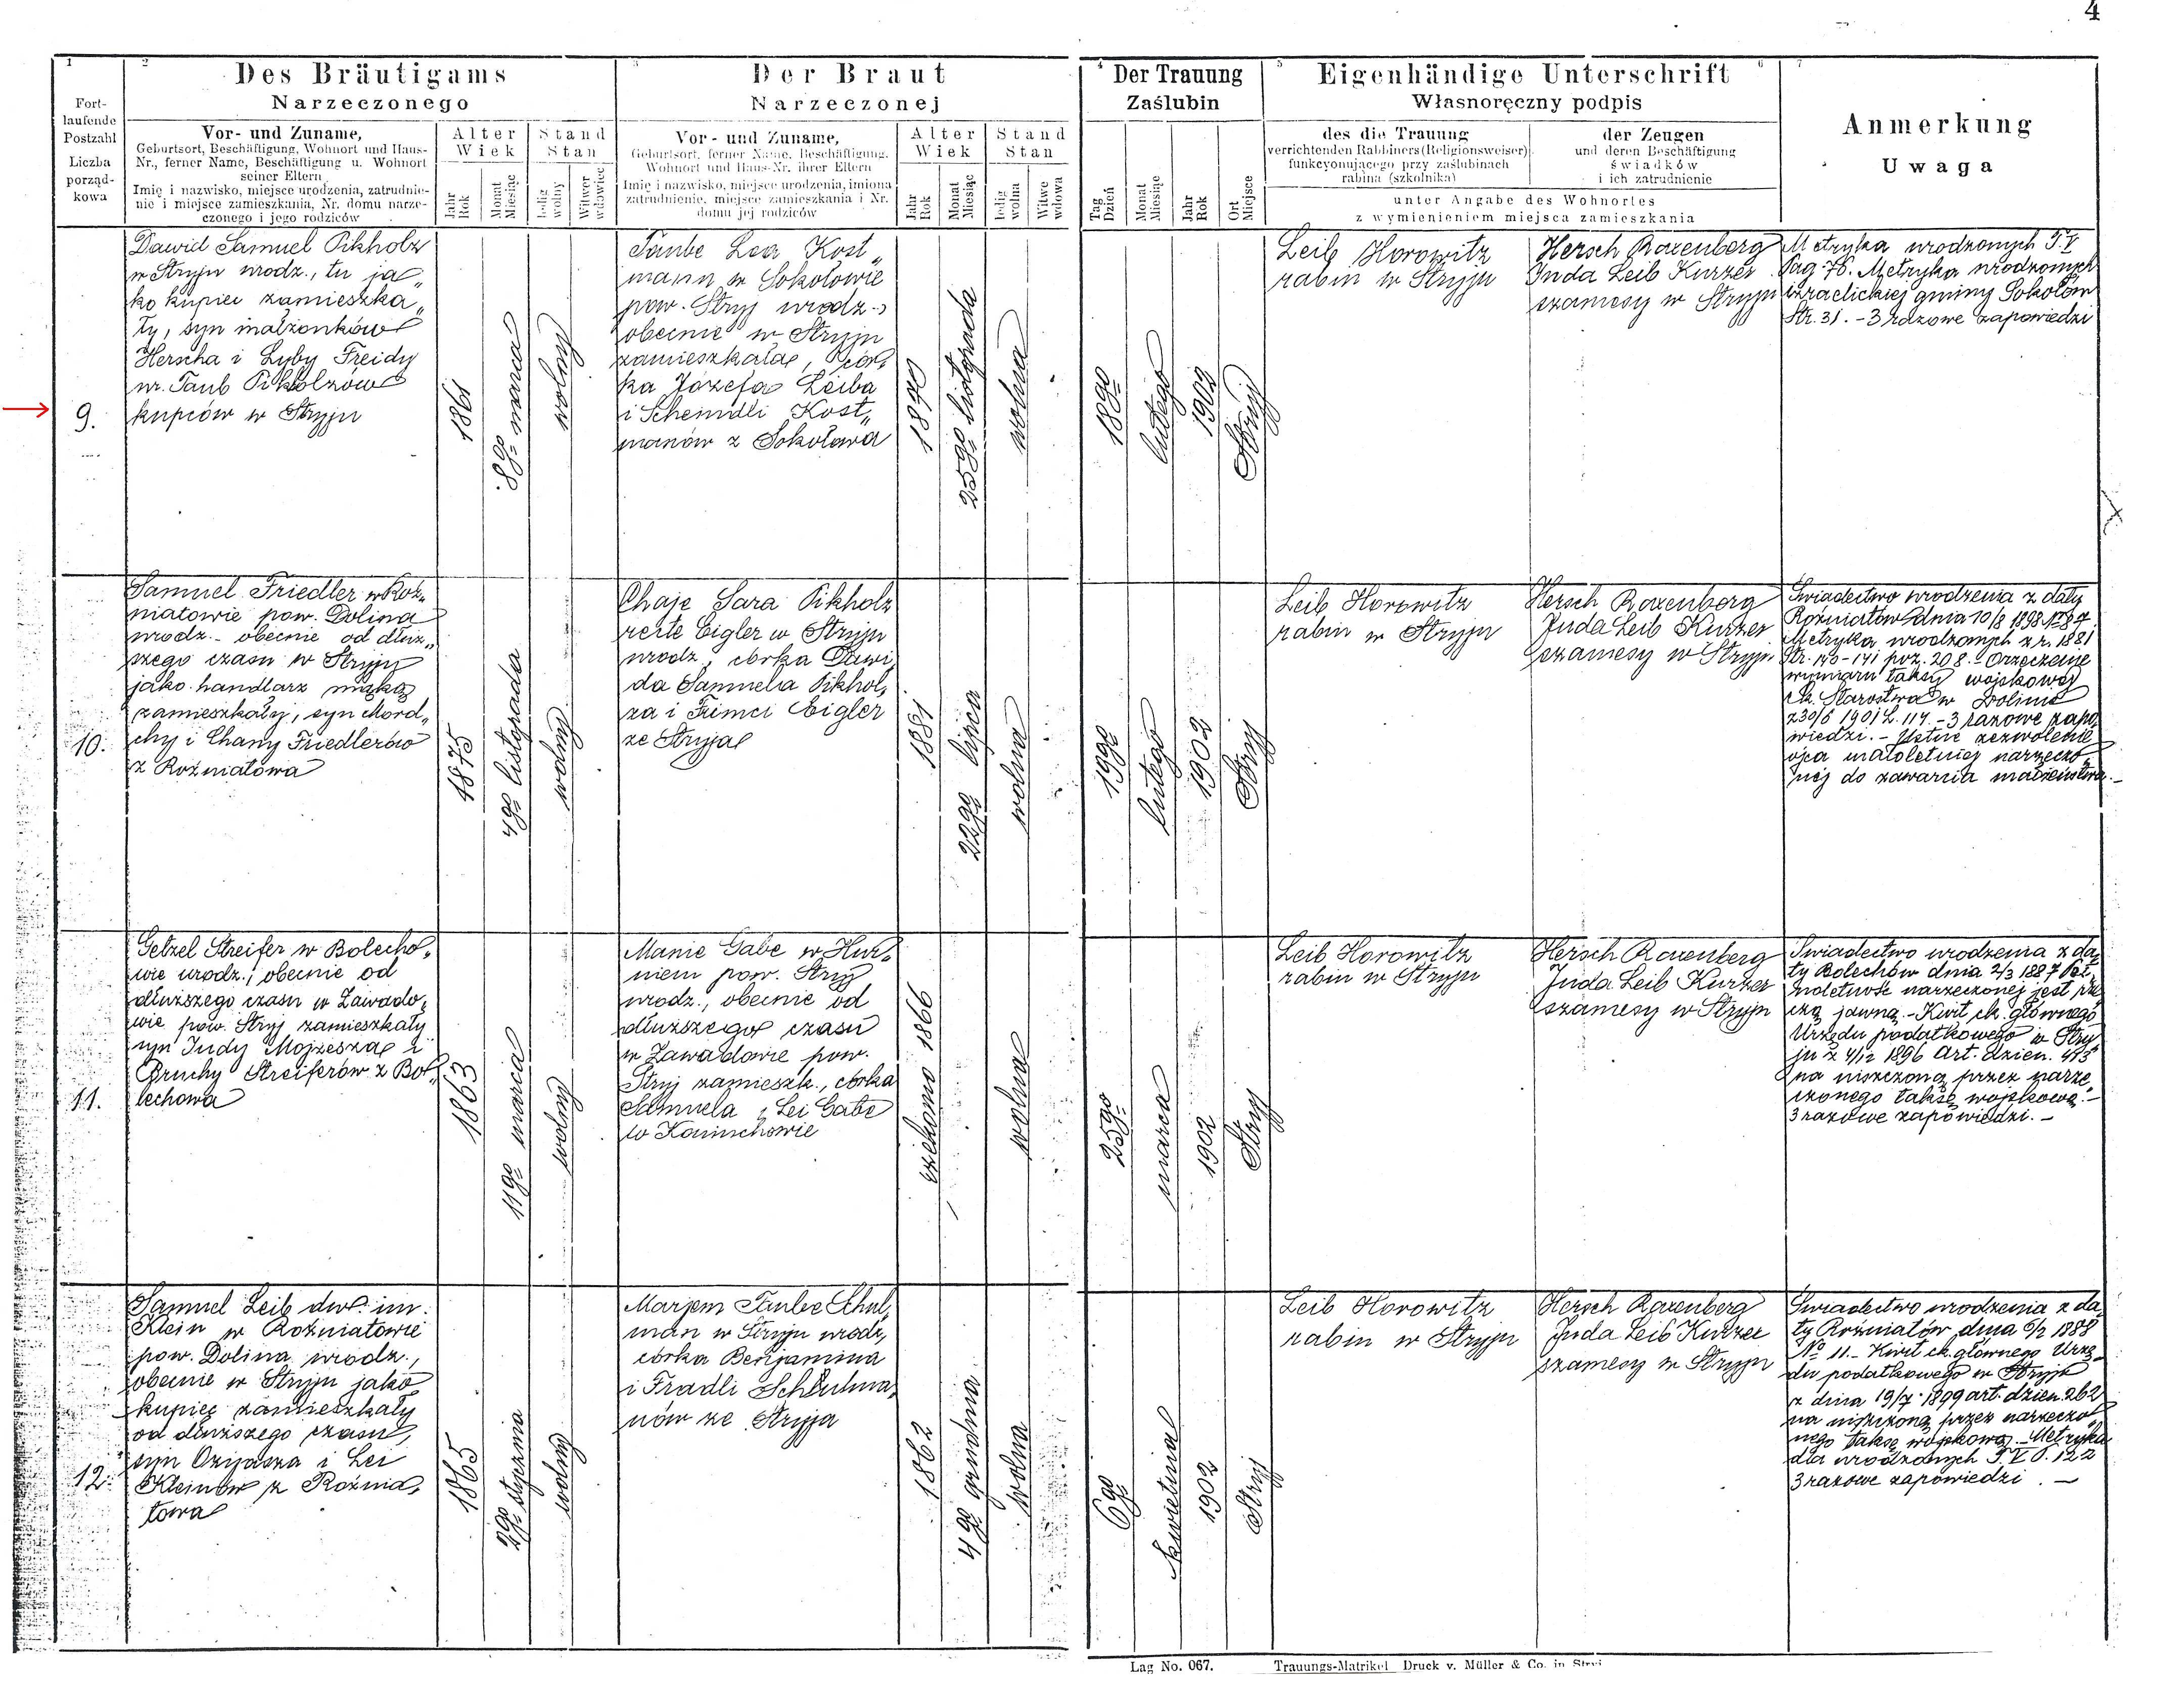 4
1
2
Des Bräutigams
Narzeczonego
Der Braut
Narzeczonej
Der Trauung
Zaślubin
Eigenhändige Unterschrift
Własnoręczny podpis
Anmerkung
Uwaga
Fort-
laufende
Postzahl
Liczba
porząd-
kowa
Vor- und Zuname,
Geburtsort, Beschäftigung, Wohnort und Haus-
Nr., ferner Name, Beschäftigung u. Wohnort
seiner Eltern
Imię i nazwisko, miejsce urodzenia, zatrudnie-
nie i miejsce zamieszkania, Nr. domu narze-
czonego i jego rodziców
Alter
Wiek
Jahr
Rok
Monat
Miesiąc
Stand
Stan
ledig
wolny
Witwer
wdowiec
Vor- und Zuname,
Geburtsort, ferner Name, Beschäftigung,
Wohnort und Haus-Nr. ihrer Eltern
Imię i nazwisko, miejsce urodzenia, imiona
zatrudnienie, miejsce zamieszkania i Nr.
domu jej rodziców
Alter
Wiek
Jahr
Rok
Monat
Miesiąc
Stand
Stan
ledig
wolna
Witwe
wdowa
Tag
Dzień
Monat
Miesiąc
Jahr
Rok
Ort
Miejsce
des die Trauung
verrichtenden Rabbiners (Religionsweiser)
funkcyonującego przy zaślubinach
rabina (szkolnika)
der Zeugen
und deren Beschäftigung
świadków
i ich zatrudnienie
unter Angabe des Wohnortes
z wymienieniem miejsca zamieszkania
9.
Dawid Samuel Pikholz
w Stryju urodz., tu ja„
ko kupiec zamieszka„
ły, syn małżonków
Herscha i Lyby Freidy
ur. Taub Pikholzów
kupców w Stryju
1861
8go marca
wolny
Taube Lea Kost„
mann w Sokołowie
pow. Stryj urodz.,
obecnie w Stryju
zamieszkała, cór„
ka Józefa Leiba
i Scheindli Kost„
manów z Sokołowa
1870
25go listopada
wolna
18go
lutego
1902
Stryj
Leib Horowitz
rabin w Stryju
Hersch Rosenberg
Juda Leib Kurzer
szamesy w Stryju
Metryka urodzonych T. I
Pag. 76. Metryka urodzonych
izraelickiej gminy Sokołów
Str. 31. - 3 razowe zapowiedzi
10.
Samuel Friedler w Roż„
niatowie pow. Dolina
urodz. - obecnie od dłuż„
szego czasu w Stryju
jako handlarz mąką
zamieszkały, syn Mord„
chy i Chany Friedlerów
z Rożniatowa
1875
4go listopada
wolny
Chaje Sara Pikholz
recte Eigler w Stryju
urodz., córka Dawi„
da Samuela Pikhol„
za i Fimci Eigler
ze Stryja
1881
22go lipca
wolna
19go
lutego
1902
Stryj
Leib Horowitz
rabin w Stryju
Hersch Rosenberg
Juda Leib Kurzer
szamesy w Stryju
Świadectwo urodzenia z daty
Rożniatów dnia 10/8 1898
Metryka urodzonych z r. 1881
Str. 140-141 poz. 208. - Orzeczenie
wymiaru taksy wojskowej
ck. Starostwa w Dolinie
z 30/6 1901 L. 114. - 3 razowe zapo„
wiedzi. - Ustne zezwolenie
ojca małoletniej narzeczo„
nej do zawarcia małżeństwa. -
11.
Getzel Streifer w Bolecho„
wie urodz., obecnie od
dłuższego czasu w Zawado„
wie pow. Stryj zamieszkały
syn Judy Mojżesza i
Bruchy Streiferów z Bo„
lechowa
1863
11go marca
wolny
Manie Gabe w Hur„
niem pow. Stryj
urodz., obecnie od
dłuższego czasu
w Zawadowie pow.
Stryj zamieszk., córka
Samuela i Lei Gabe
w
rzekomo 1866
wolna
25go
marca
1902
Stryj
Leib Horowitz
rabin w Stryju
Hersch Rosenberg
Juda Leib Kurzer
szamesy w Stryju
Świadectwo urodzenia z da„
ty Bolechów dnia 2/3 1887
noletność narzeczonej jest rze
czą jawną. - Kwit ck. głównego
Urzędu podatkowego w Stry„
ju z 4/12 1896 art. dzien.
na uiszczoną przez narze„
czonego taksę wojskową. -
3 razowe zapowiedzi. -
12.
Samuel Leib dw. im.
Klein w Rożniatowie
pow. Dolina urodz.,
obecnie w Stryju jako
kupiec zamieszkały
od dłuższego czasu,
syn Ozyjasza i Lei
Kleinów z Rożnia„
towa
1865
2go stycznia
wolny
Marjem Taube Schul„
man w Stryju urodz,
córka Benjamina
i Fradli Schulma„
nów ze Stryja
1862
4go grudnia
wolna
6go
kwietnia
1902
Stryj
Leib Horowitz
rabin w Stryju
Hersch Rosenberg
Juda Leib Kurzer
szamesy w Stryju
Świadectwo urodzenia z da„
ty Rożniatów dnia 6/2 1888
No 11. - Kwit ck. głównego Urzę„
du podatkowego w Stryju
z dnia 19/7 1899 art. dzien. 262
na uiszczoną przez narzeczo„
nego taksę wojskową. - Metryka
dla urodzonych T. I O. 122
3 razowe zapowiedzi. -
Lag No. 067.
Trauungs-Matrikel Druck v. Müller & Co. in Stryj